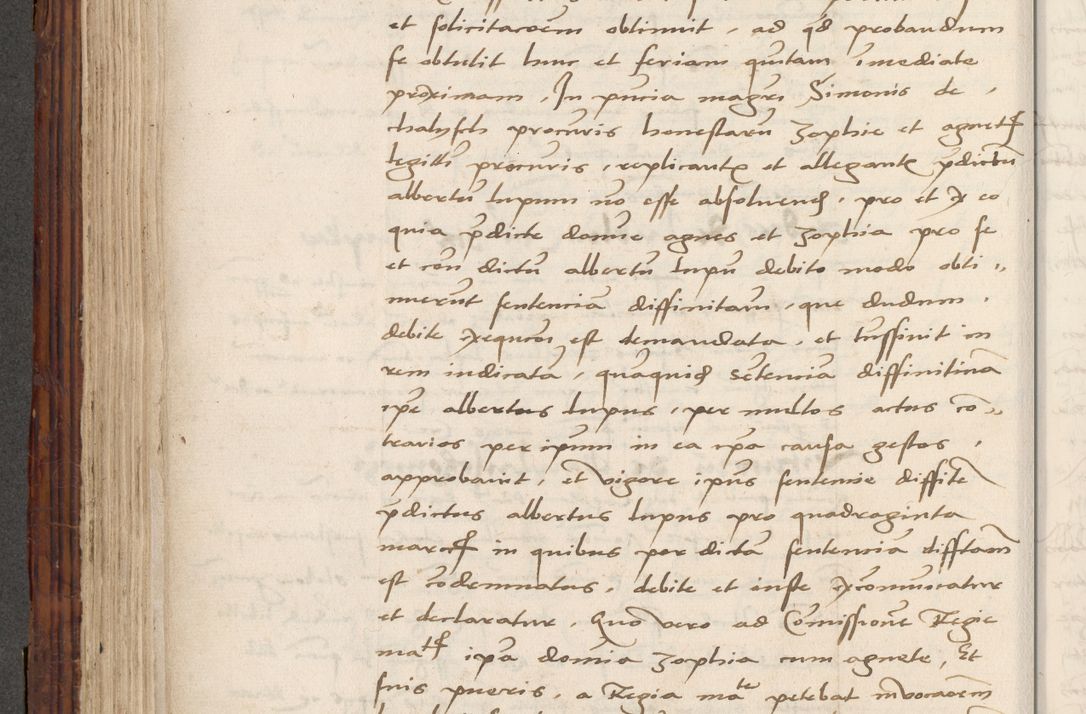 et solicitacoem obtinuit , ad qd probandum
se obtulit hinc et feriam quitam imediate
proximam . In pncia magri Simonis de ,
chalysch procuris honestaru Zophie et agnet
legitti procuris , replicante et allegante pdictu
albertu lupum no esse absoluend , pro et ex eo
quia pdicte domine agnes et Zophia pro se
et con dictu albertu lupu debito modo obti
nuerut sentencia diffinitam , que dudum .
debite exequcoi est demandata , et tussiuit in
rem iudicata , quaquid setencia diffinitiua
ipe albertus lupus , per multos actus co
trarios per ipum in ea ipa causa gestos ,
approbauit , et vigore ipius sentencie diffite
pdictus albertus lupus pro quadraginta
marc in quibus per dicta sentencia diffitam
est codemnatus , debite et iuste excomunicatur
et declaratur . Quo vero ad Comissione Regie
matis ipa domia Zophia cum agnete , Et
suis pueris , a Regia mate petebat inuocacoem